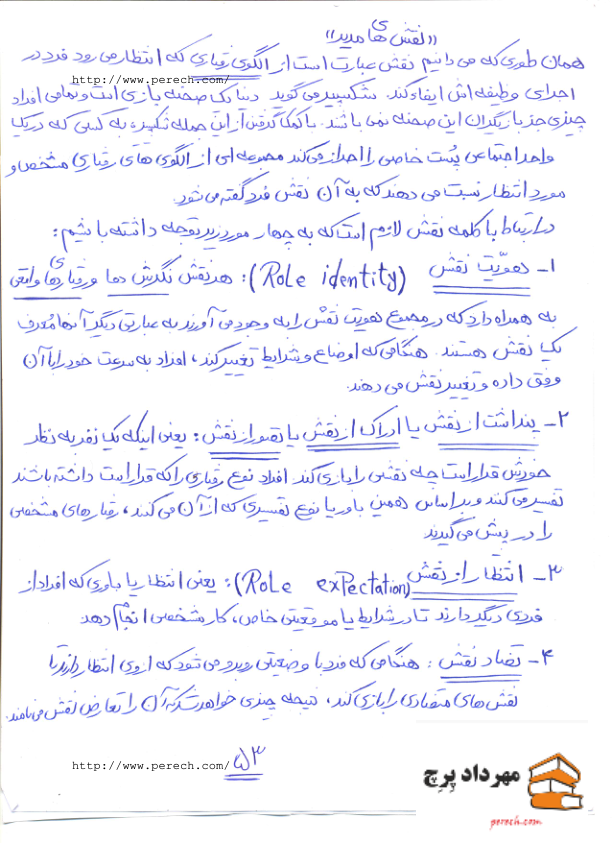 «نقش های مدیر»
همان طوری که می دانیم نقش عبارت است از الگوی رفتاری که انتظار می رود فرد در
http://www.perech.com/
اجرای وظیفه اش ایفاء کند. شکسپیر می گوید دنیا یک صحنه بازی است و تمامی افراد
چیزی جز بازیگران این صحنه نمی باشد. با کمک گرفتن از این جمله شکسپیر، به کسی که در یک
واحد اجتماعی پُست خاصی را احراز می کند مجموعه ای از الگوی های رفتاری مشخص و
مورد انتظار نسبت می دهند که به آن نقش فرد گفته می شود.
در ارتباط با کلمه نقش لازم است که به چهار مورد زیر توجه داشته باشیم:
۱- هویّت نقش (Role identity): هر نقش نگرش ها و رفتارهای واقعی
به همراه دارد که در مجموع هویت نقش را به وجود می آورند به عبارتی دیگر آنها مُعرف
یک نقش هستند. هنگامی که اوضاع و شرایط تغییر کند، افراد به سرعت خود را با آن
وفق داده و تغییر نقش می دهند.
۲- پنداشت از نقش یا ادراک از نقش یا تصور از نقش: یعنی اینکه یک نفر به نظر
خودش قرار است چه نقشی را بازی کند. افراد نوع رفتاری را که قرار است داشته باشند
تفسیر می کنند و بر اساس همین باور یا نوع تفسیری که از آن می کنند، رفتارهای مشخصی
را در پیش می گیرند
۳- انتظار از نقش (Role expectation): یعنی انتظار یا باوری که افراد از
فردی دیگر دارند تا در شرایط یا موقعیتی خاص، کار مشخصی انجام دهد
۴- تضاد نقش: هنگامی که فرد با وضعیتی روبرو می شود که از وی انتظار دارند تا
نقش های متضادی را بازی کند، نتیجه چیزی خواهد شد که آن را تعارض نقش می نامند.
http://www.perech.com/
۵۳
مهرداد پرچ
perech.com